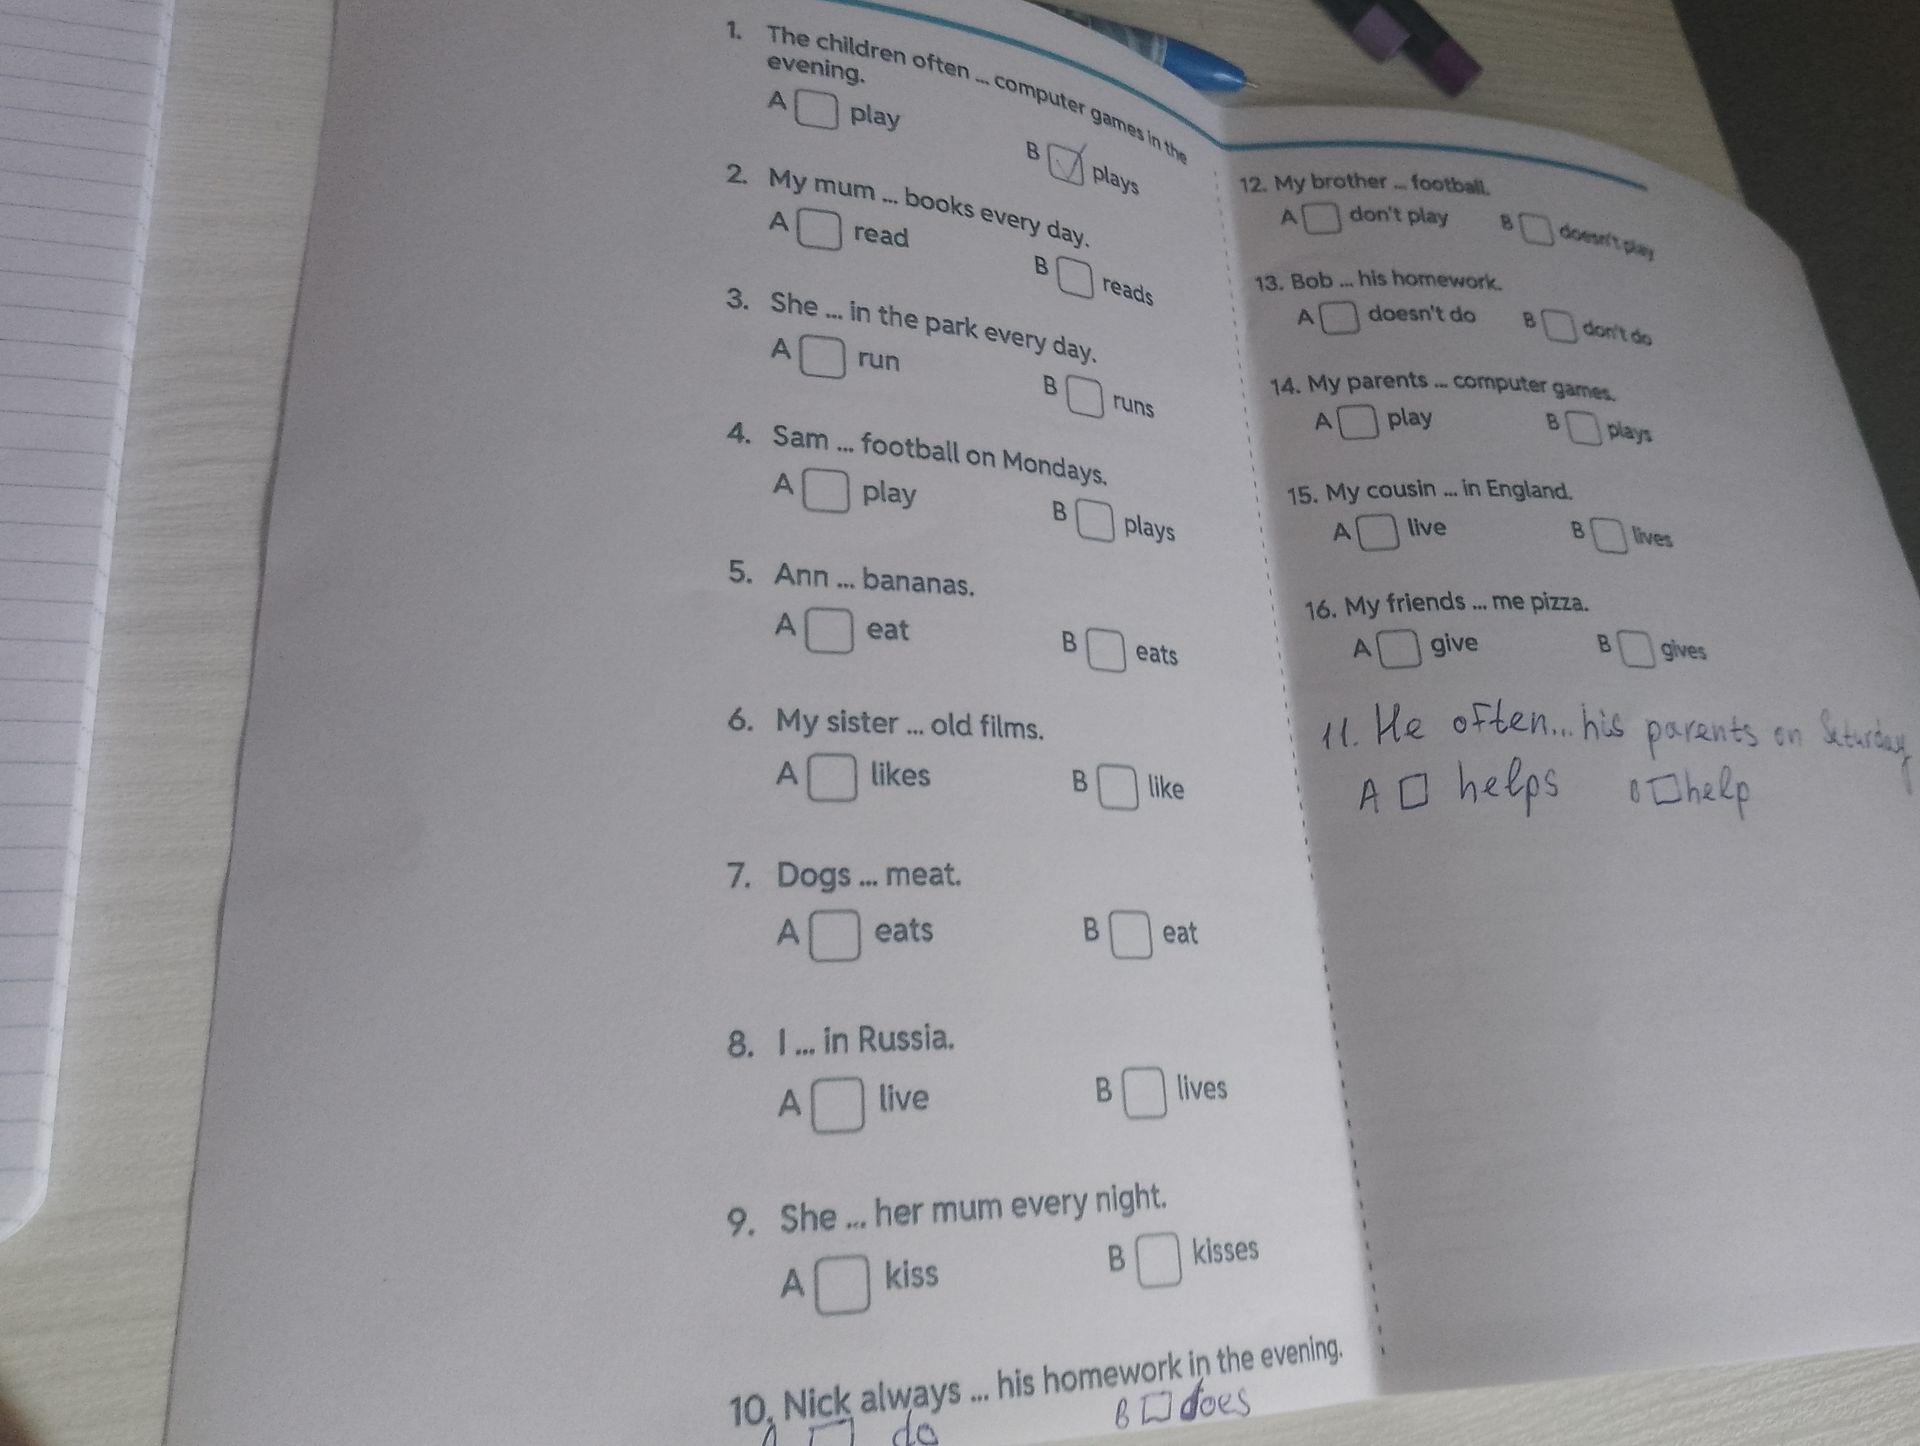 1. The children often ... computer games in the
evening.
A play
B plays
2. My mum ... books every day.
A read
B reads
3. She ... in the park every day.
A run
B runs
4. Sam ... football on Mondays.
A play
B plays
5. Ann ... bananas.
A eat
B eats
6. My sister ... old films.
A likes
B like
7. Dogs ... meat.
A eats
B eat
8. I ... in Russia.
A live
B lives
9. She ... her mum every night.
A kiss
B kisses
10. Nick always ... his homework in the evening.
A do
B does
12. My brother ... football.
A don't play
B doesn't play
13. Bob ... his homework.
A doesn't do
B don't do
14. My parents ... computer games.
A play
B plays
15. My cousin ... in England.
A live
B lives
16. My friends ... me pizza.
A give
B gives
11. He often... his parents on Saturday
A helps
B help